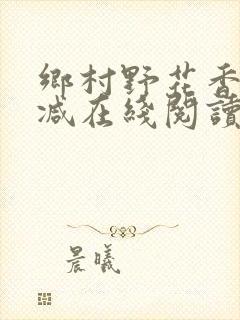 鄉村野花香
减在綫閱讀
晨曦